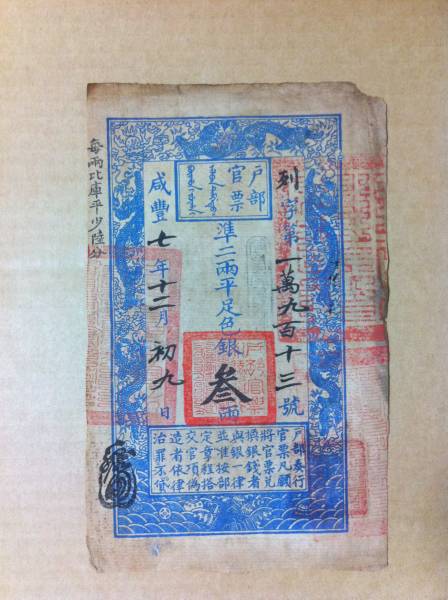 戶部
官票
列字第一萬九百十三號
準二兩平足色銀叁兩
咸豐七年十二月初九日
每兩比庫平少陸分
戶部奏行
官票凡願
將官票兌
換銀錢者
與銀一律
並准按部
定章程搭
交官項偽
造者依律
治罪不貸